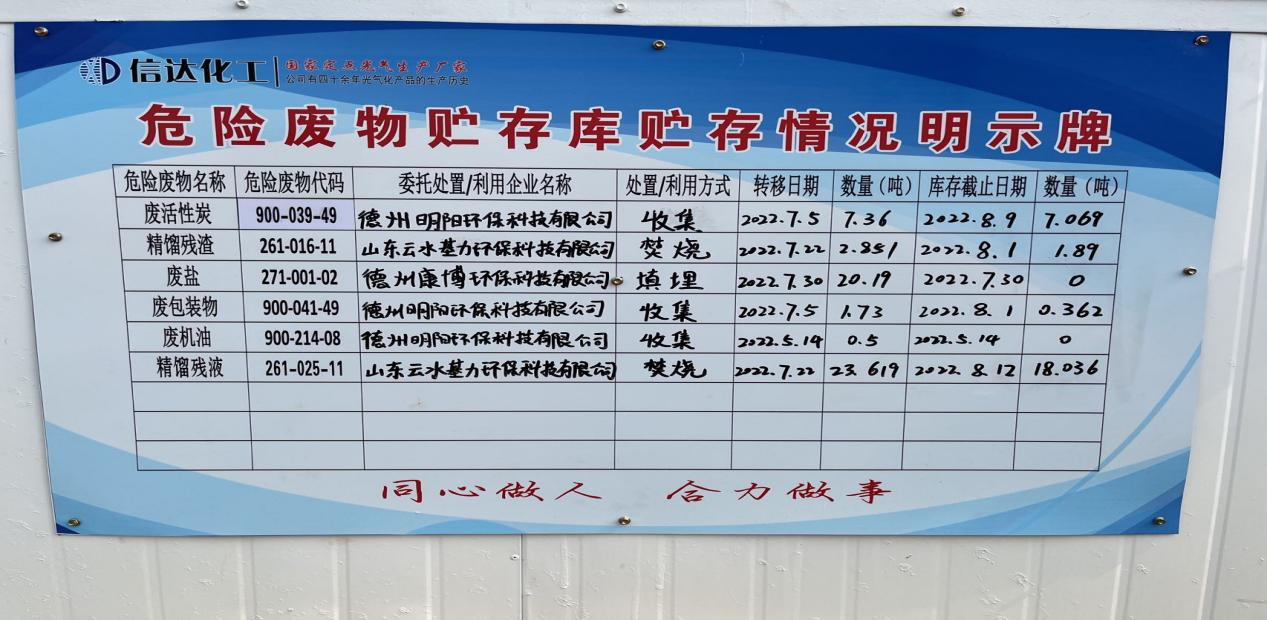 信达化工 国家定点光气生产厂家
公司有四十余年光气化产品的生产历史
危险废物贮存库贮存情况明示牌
危险废物名称 危险废物代码 委托处置/利用企业名称 处置/利用方式 转移日期 数量（吨） 库存截止日期 数量（吨）
废活性炭 900-039-49 德州明阳环保科技有限公司 收集 2022.7.5 7.36 2022.8.9 7.069
精馏残渣 261-016-11 山东云水基力环保科技有限公司 焚烧 2022.7.22 2.851 2022.8.1 1.89
废盐 271-001-02 德州康博环保科技有限公司 填埋 2022.7.30 20.19 2022.7.30 0
废包装物 900-041-49 德州明阳环保科技有限公司 收集 2022.7.5 1.73 2022.8.1 0.362
废机油 900-214-08 德州明阳环保科技有限公司 收集 2022.5.14 0.5 2022.5.14 0
精馏残液 261-025-11 山东云水基力环保科技有限公司 焚烧 2022.7.22 23.619 2022.8.12 18.036
同心做人 合力做事